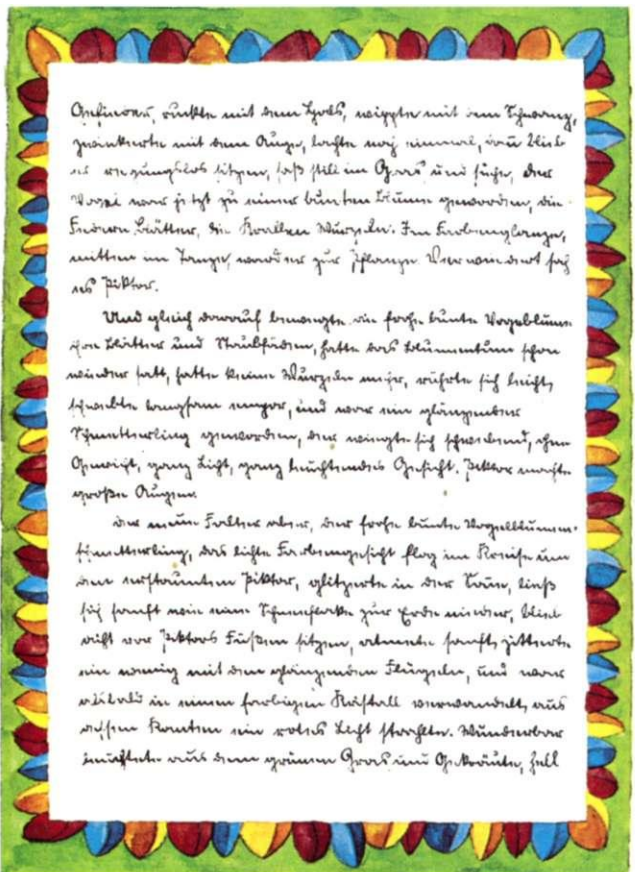 Gefieder, ruckte mit dem Hals, wippte mit dem Schwanz,
zwinkerte mit dem Auge, lachte noch einmal, dann blieb
er regungslos sitzen, saß still im Gras und siehe, der
Vogel war jetzt zu einer bunten Blume geworden, die
Federn Blätter, die Krallen Wurzeln. Im Farbenglanze,
mitten im Tanze, ward er zur Pflanze. Verwundert sah
es Piktor.
Und gleich darauf bewegte die frohe bunte Vogelblume
ihre Blätter und Staubfäden, hatte das Blumentum schon
wieder satt, hatte keine Wurzeln mehr, rührte sich leicht,
schwebte langsam empor, und war ein glänzender
Schmetterling geworden, der wiegte sich schwebend, ohne
Gewicht, ganz Licht, ganz leuchtendes Gesicht. Piktor machte
große Augen.
der neue Falter aber, der frohe bunte Vogelblumen-
schmetterling, das lichte Farbengesicht flog im Kreise um
den erstaunten Piktor, glitzerte in der Sonne, ließ
sich sanft wie eine Schneeflocke zur Erde nieder, blieb
dicht vor Piktors Füßen sitzen, atmete sanft, zitterte
ein wenig mit den glänzenden Flügeln, und war
alsbald in einen farbigen Kristall verwandelt, aus
dessen Kanten ein rotes Licht strahlte. Wunderbar
leuchtete aus dem grünen Gras und Gekräute, hell